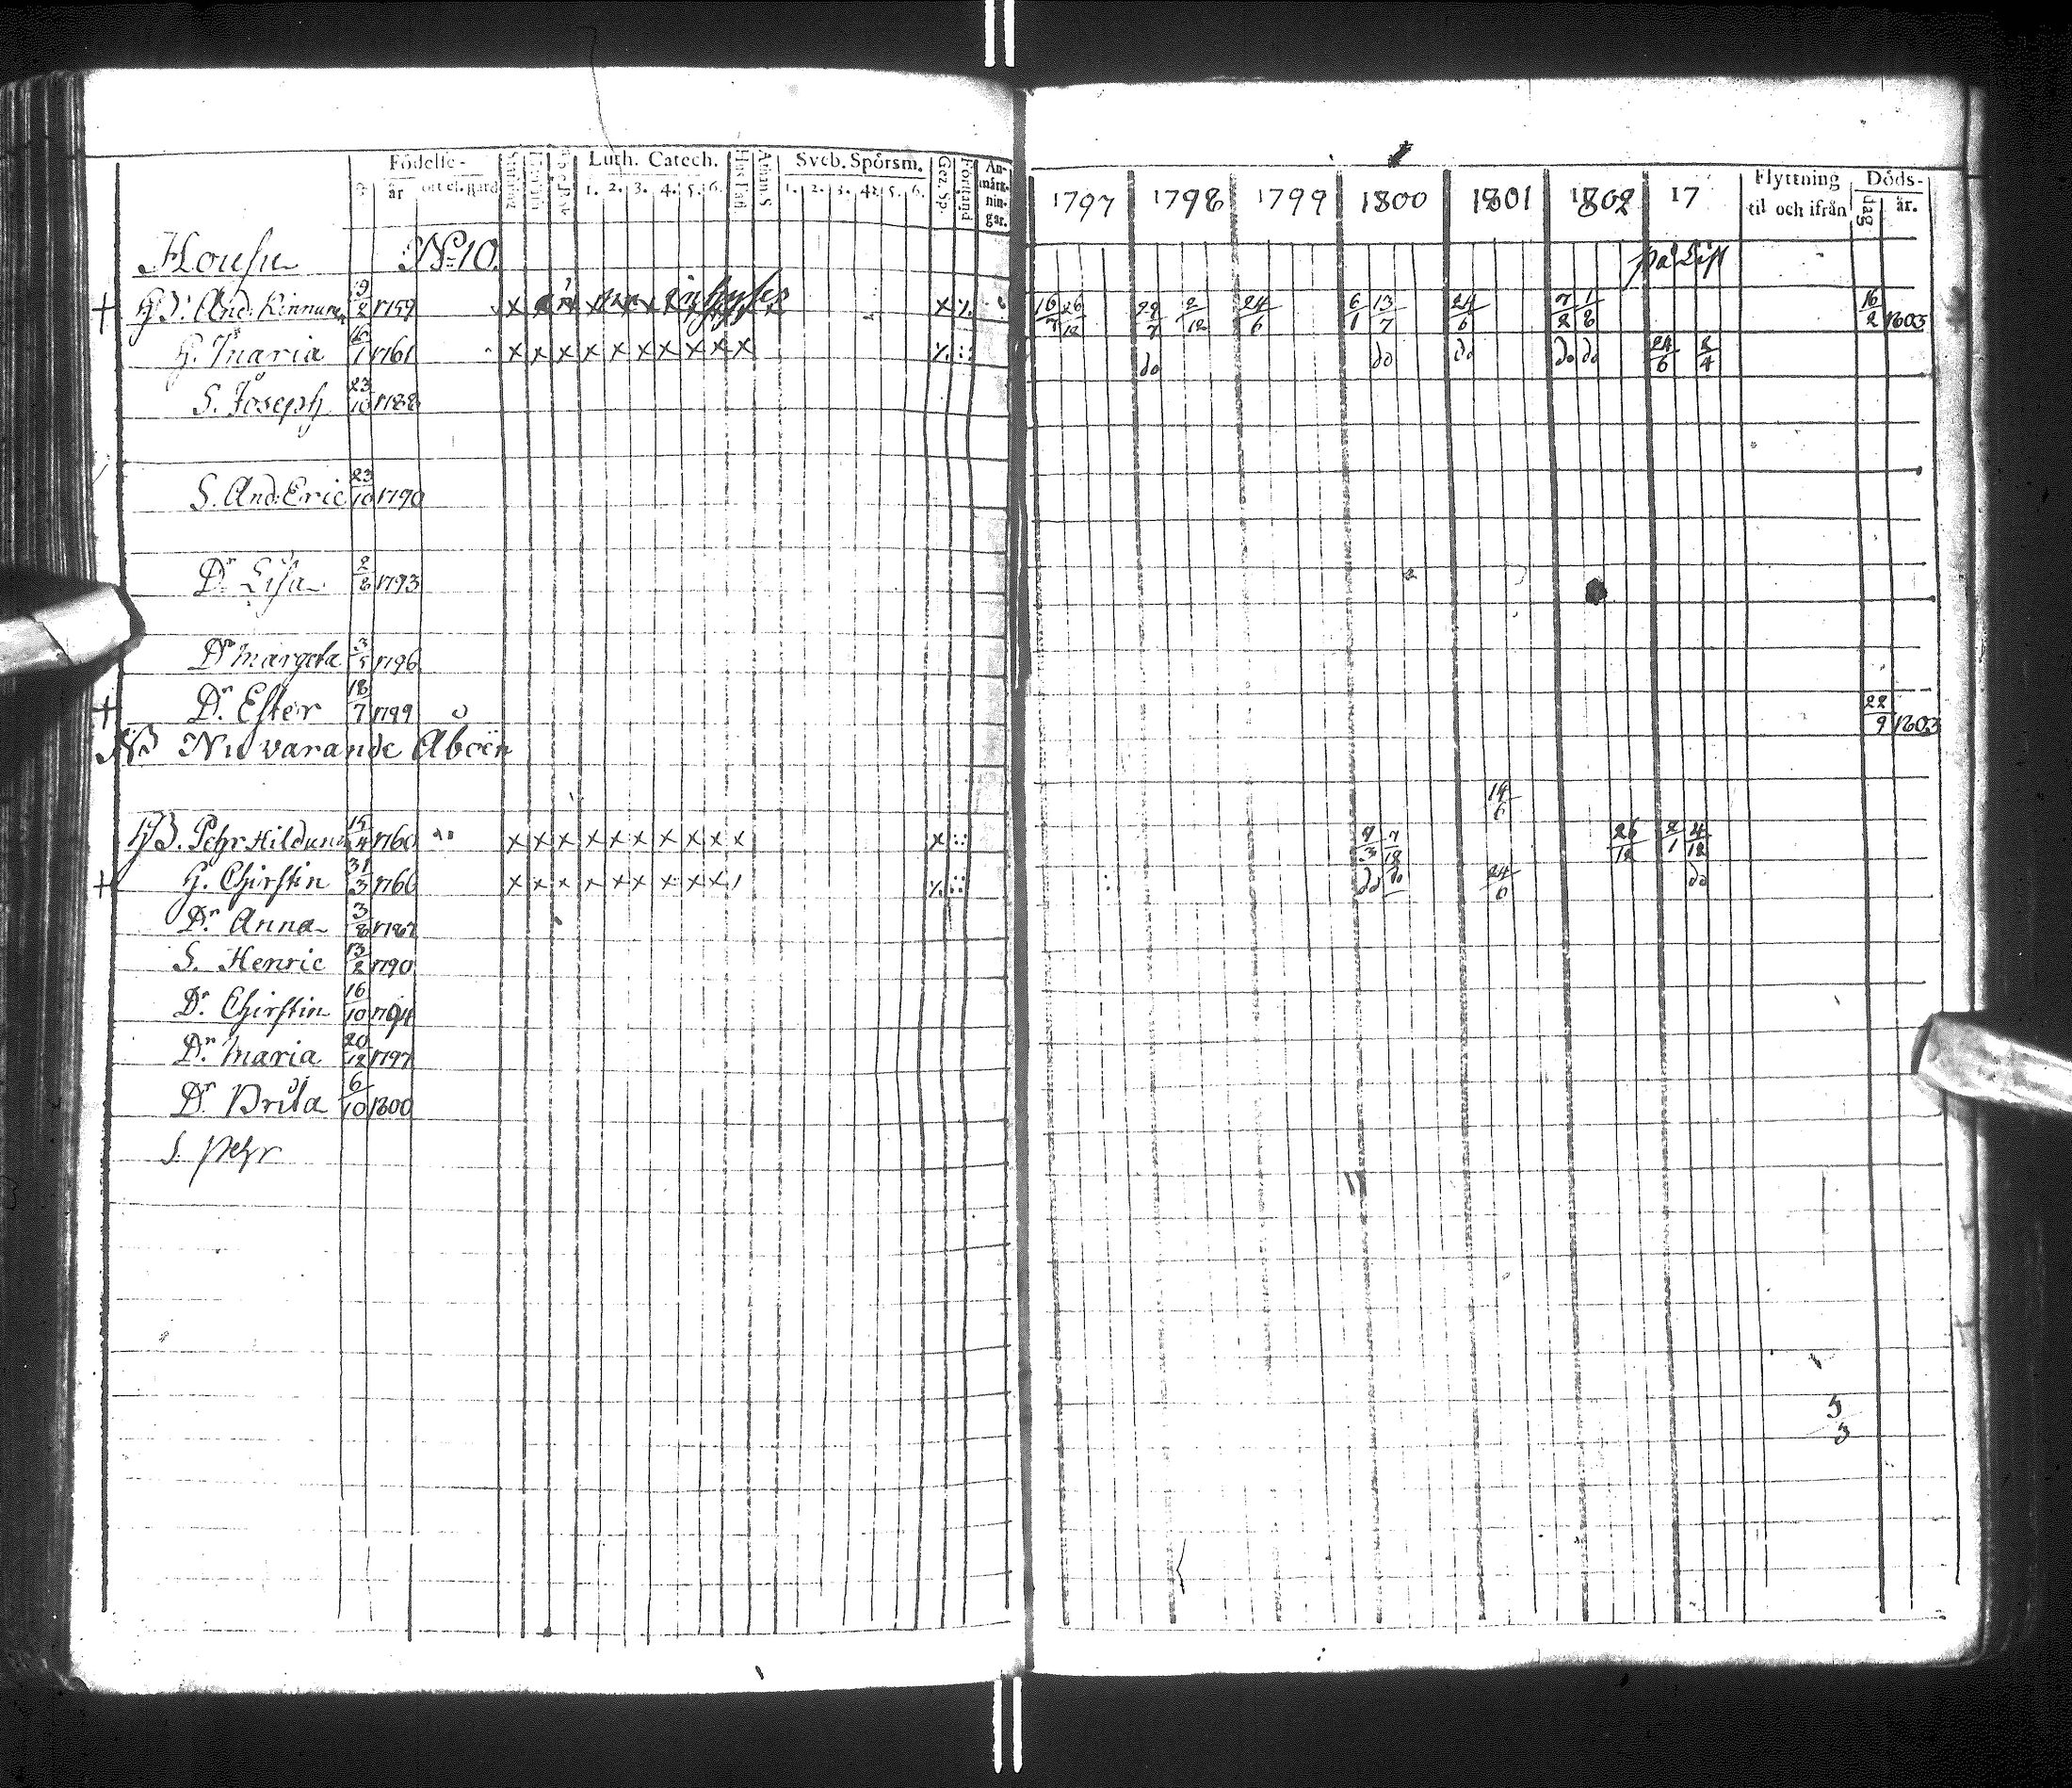 Födelse- Luth. Catech. Sveb. Spörsm. Gez. Sp. Förstånd An-märk-nin-gar. 1797 1798 1799 1800 1801 1802 17 Flyttning Döds-
år ort el. gård 1. 2. 3. 4. 5. 6. 1. 2. 3. 4. 5. 6. til och ifrån dag år.
No 10. på Lifst
And. Kinnunen 2 1759 x 16/7 26/12 2/12 24/6 6/1 13/7 24/6 16/2 1803
G. Maria 1 1761 x x x x x x x x x x do do do do do 24/6 2/4
S. Joseph 23/10 1788
S. And: Eric 23/10 1790
Dr Lisa 2/8 1793
Dr Margeta 3/5 1796
Dr. Ester 18/7 1799 22/9 1803
NB Nu varande Åboen
14/6
HB. Pehr Hildunen 15/4 1760 x x x x x x x x x x x 7/12 26/12 2/1 4/12
G. Chirstin 31/3 1766 x x x x x x x x x do do 24/6 do
Dr. Anna 3/8 1787
S. Henric 13/2 1790
Dr. Chirstin 16/10 1794
Dr. Maria 20/12 1797
Dr. Brita 6/10 1800
S. Pehr
5/3